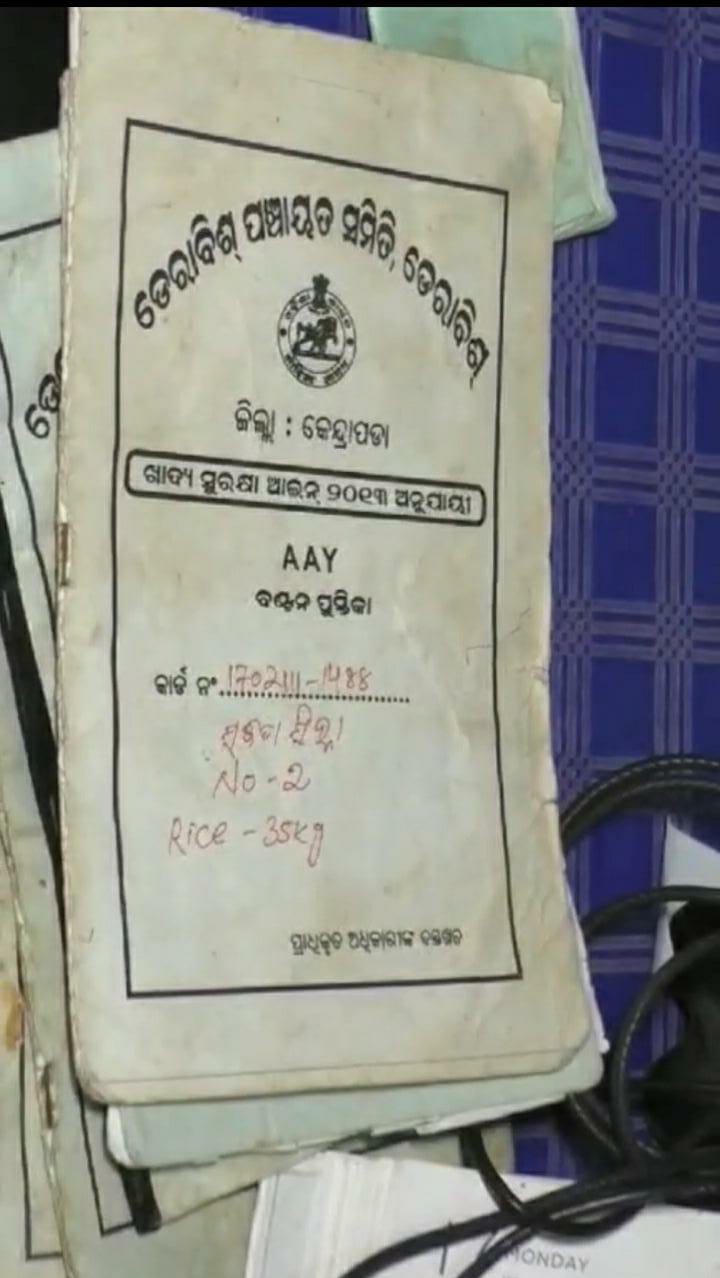 ଡେରାବିଶ୍ ପଞ୍ଚାୟତ ସମିତି, ଡେରାବିଶ୍
ଜିଲ୍ଲା : କେନ୍ଦ୍ରାପଡା
ଖାଦ୍ୟ ସୁରକ୍ଷା ଆଇନ୍ ୨୦୧୩ ଅନୁଯାୟୀ
AAY
ବଣ୍ଟନ ପୁସ୍ତିକା
କାର୍ଡ ନଂ
No - 2
Rice - 35kg
ପ୍ରାଧିକୃତ ଅଧିକାରୀଙ୍କ ଦସ୍ତଖତ
MONDAY